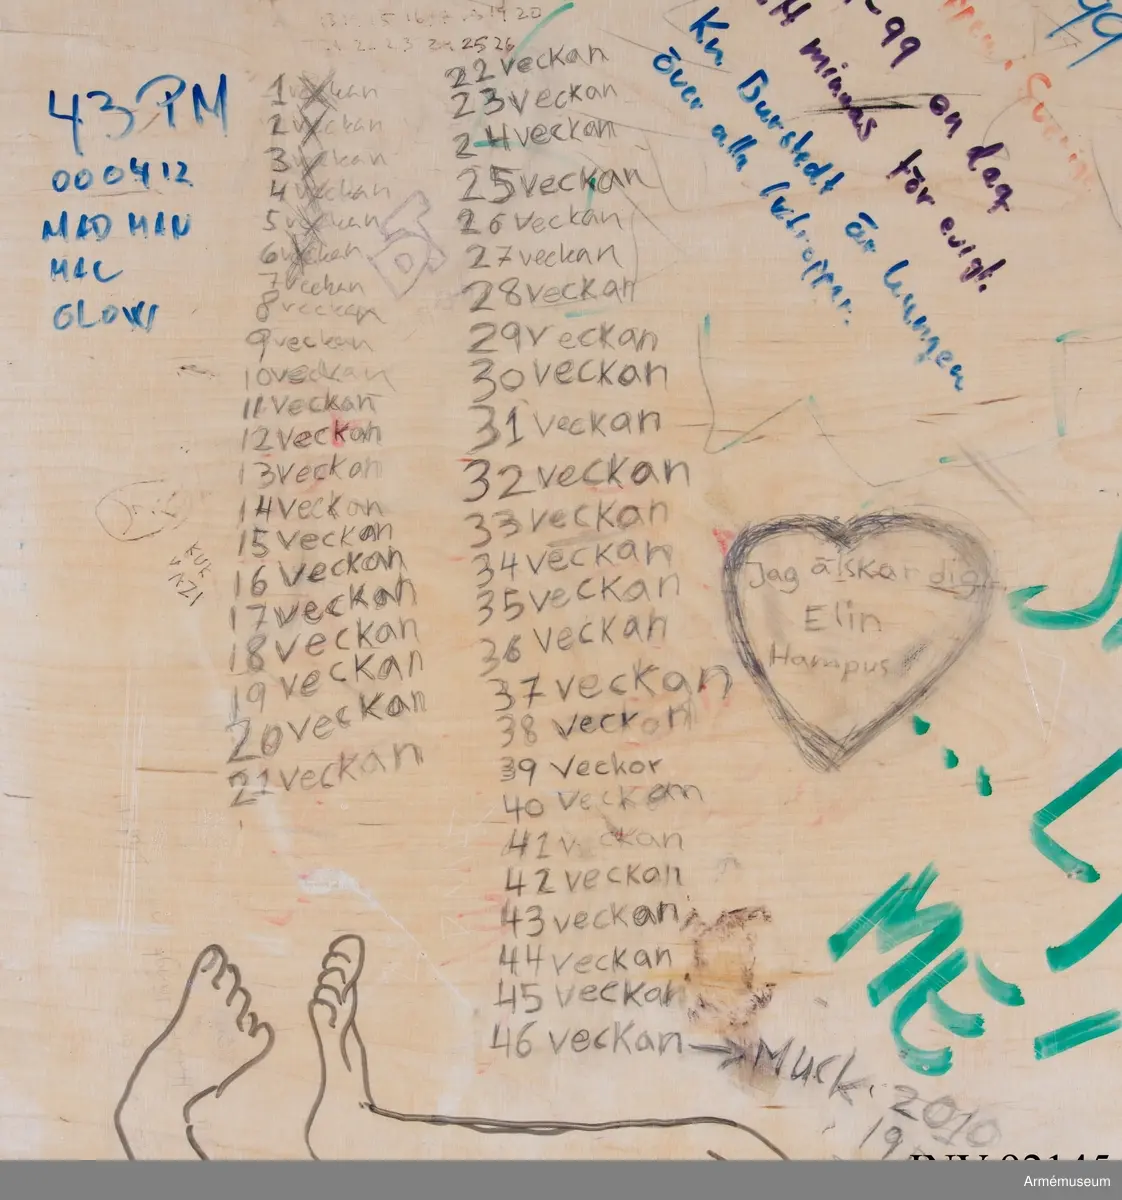 13 14 15 16 17 18 19 20
23 24 25 26
43 PM
000412
MAD MAN
MAC
GLOW
1 veckan
2 veckan
3 veckan
4 veckan
5 veckan
6 veckan
7 veckan
8 veckan
9 veckan
10 veckan
11 veckan
12 veckan
13 veckan
14 veckan
15 veckan
16 veckan
17 veckan
18 veckan
19 veckan
20 veckan
21 veckan
22 veckan
23 veckan
24 veckan
25 veckan
26 veckan
27 veckan
28 veckan
29 veckan
30 veckan
31 veckan
32 veckan
33 veckan
34 veckan
35 veckan
36 veckan
37 veckan
38 veckan
39 veckor
40 veckan
41 veckan
42 veckan
43 veckan
44 veckan
45 veckan
46 veckan → Muck. 2010
19
-99 en dag
minnas för evigt.
Kn Burstedt är kungen
över alla
99
KUK
Jag älskar dig
Elin
Hampus
ME
Armémuseum